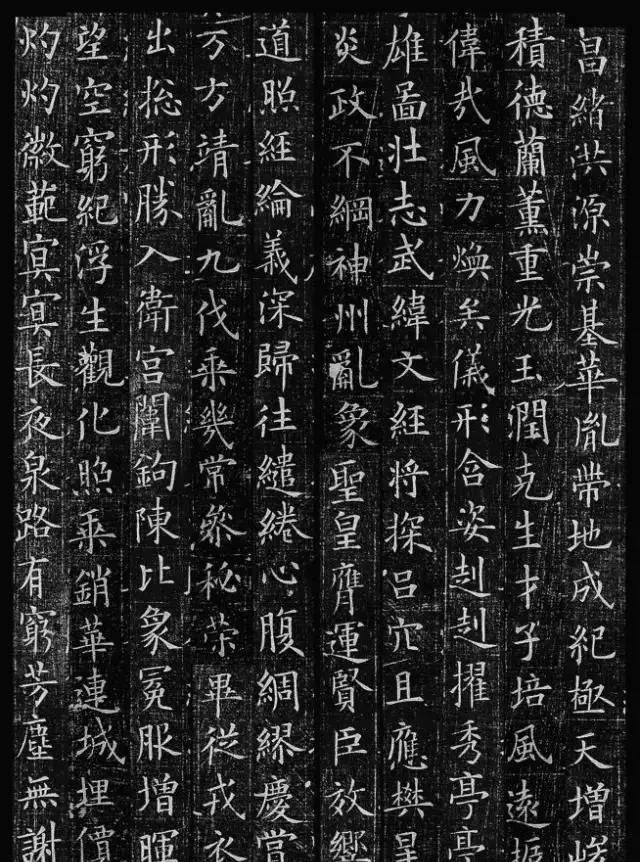 昌緒洪源崇基華胤帶地成紀極天增峻
積德蘭薰重光玉潤克生才子培風遠振
偉哉風力煥矣儀形含姿赳赳擢秀亭亭
雄啚壯志武緯文經將探呂穴且應樊星
炎政不綱神州亂象聖皇膺運賢臣放響
道照經綸義深歸往繾綣心腹綢繆慶賞
万方靖亂九伐乘幾常叅秘策畢從戎衣
出捴形勝入衛宮闈鉤陳比象冕服增暉
望空窮紀浮生觀化照乘銷華連城埋價
灼灼徽範冥冥長夜泉路有窮芳塵無謝